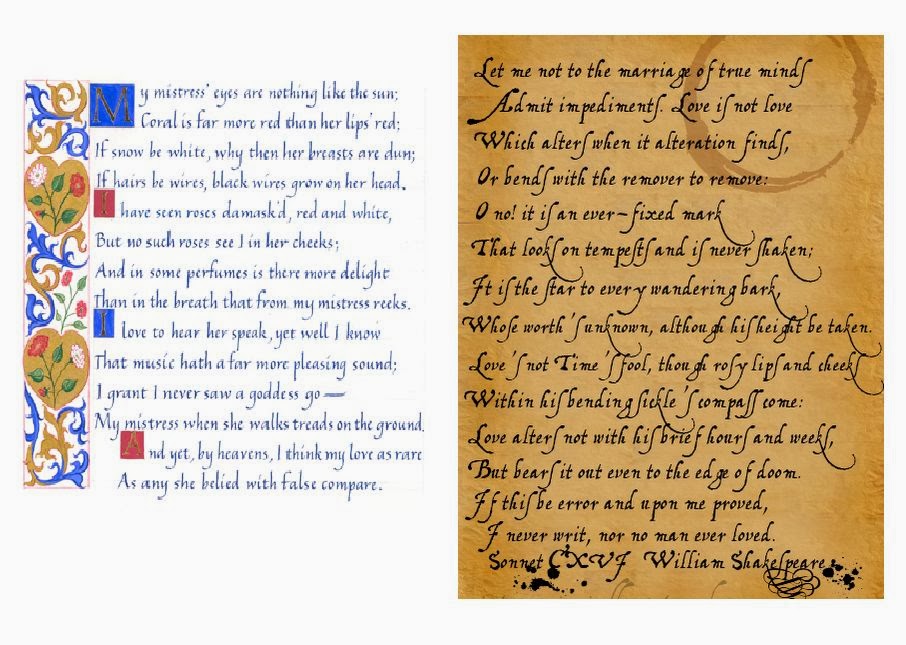 My mistress' eyes are nothing like the sun;
Coral is far more red than her lips' red;
If snow be white, why then her breasts are dun;
If hairs be wires, black wires grow on her head.
I have seen roses damask'd, red and white,
But no such roses see I in her cheeks;
And in some perfumes is there more delight
Than in the breath that from my mistress reeks.
I love to hear her speak, yet well I know
That music hath a far more pleasing sound;
I grant I never saw a goddess go —
My mistress when she walks treads on the ground.
And yet, by heavens, I think my love as rare
As any she belied with false compare.
Let me not to the marriage of true mindſ
Admit impedimentſ. Love iſ not love
Which alterſ when it alteration findſ,
Or bendſ with the remover to remove:
O no! it iſ an ever-fixed mark
That lookſ on tempeſtſ and iſ never ſhaken;
It iſ the ſtar to every wandering bark,
Whoſe worth'ſ unknown, although hiſ height be taken.
Love'ſ not Time'ſ fool, though roſy lipſ and cheekſ
Within hiſ bending ſickle'ſ compaſſ come:
Love alterſ not with hiſ brief hourſ and weekſ,
But bearſ it out even to the edge of doom.
If thiſ be error and upon me proved,
I never writ, nor no man ever loved.
Sonnet CXVI William Shakeſpeare